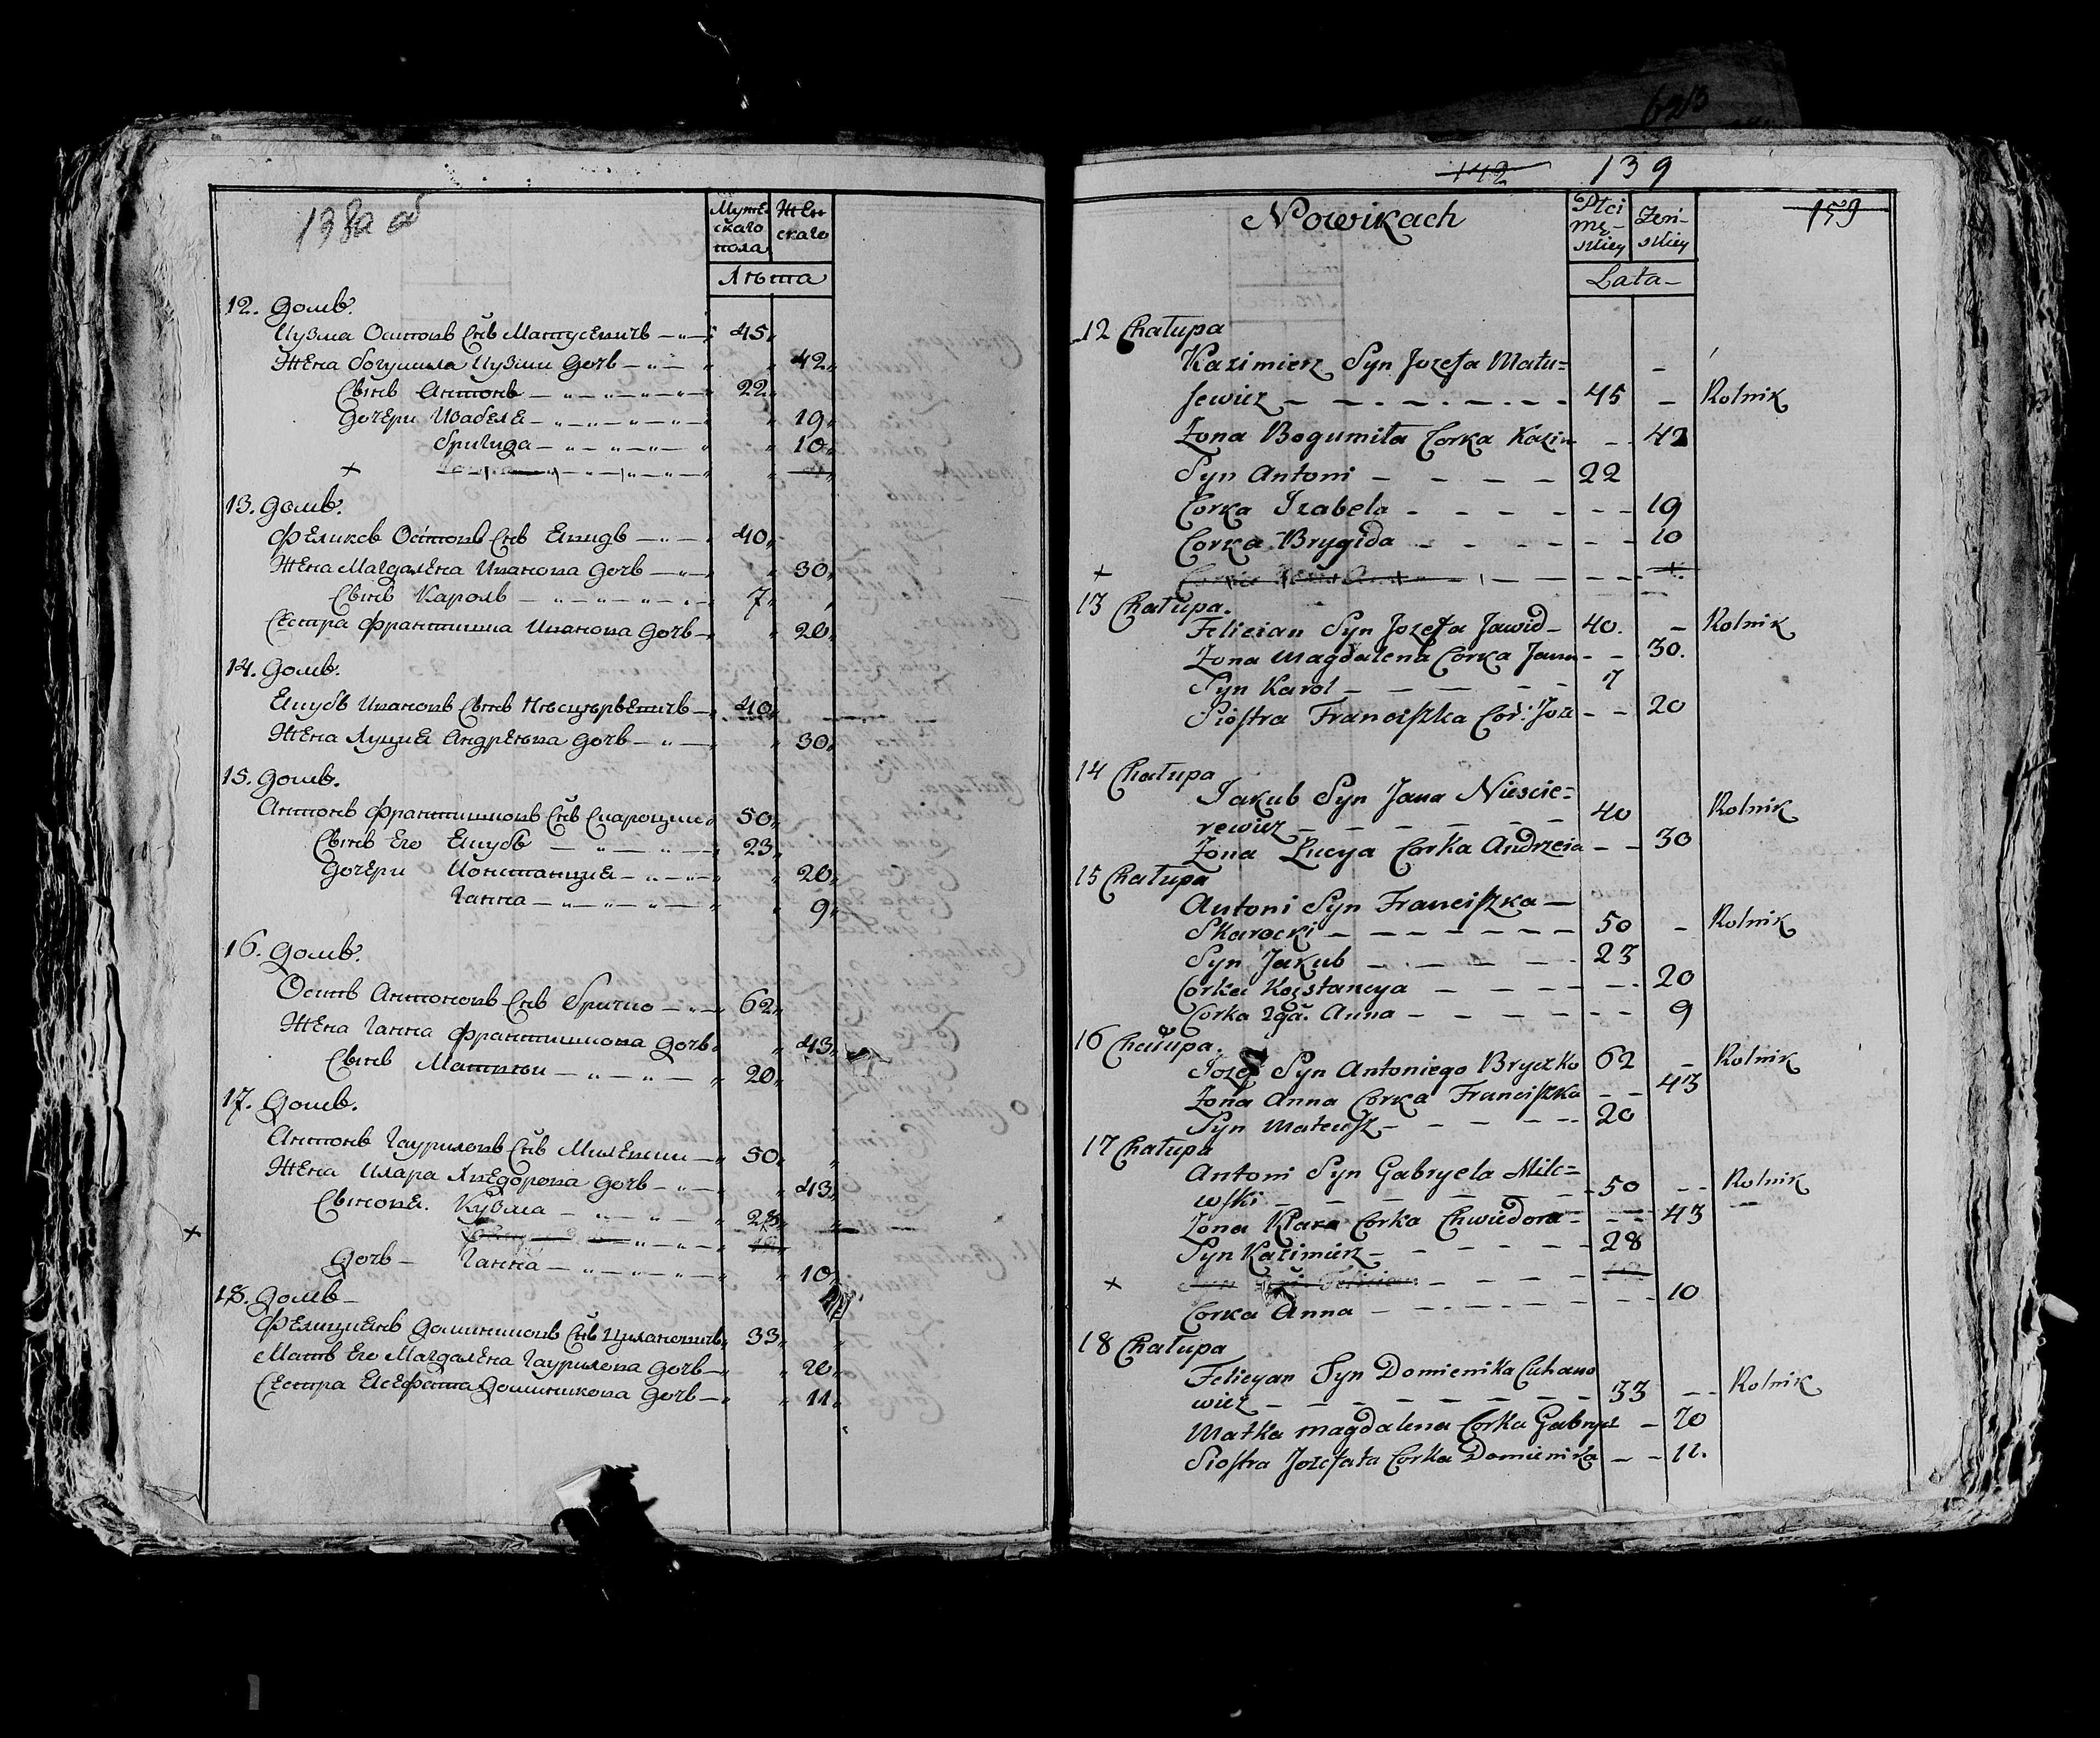 138 об
Мужескаго пола
Женскаго
Лѣта
12. Домъ.
Кузма Осиповъ Снъ Матусевичъ 45
Жена Богумила Кузми Дочь 42
Сынъ Антонъ 22
Дочери Изабеля 19
Бригида 10
+
13. Домъ.
Феликсъ Осиповъ Снъ 40
Жена Магдалена Иванова Дочь 30
Сынъ Кароль 7
Сестра Франтишка Иванова Дочь 20
14. Домъ.
Якубъ Ивановъ Сынъ 40
Жена Луция Андреева Дочь 30
15. Домъ.
Антонъ Франтишковъ Снъ Скароцки 50
Сынъ Его Якубъ 23
Дочери Констанция 20
Ганна 9
16. Домъ.
Осипъ Антоновъ Снъ Бричко 62
Жена Ганна Франтишкова Дочь 43
Сынъ 20
17. Домъ.
Антонъ Гауриловъ Снъ Милевски 50
Жена Клара Хведорова Дочь 43
Сынове. Кузма 28
+
Дочь Ганна 10
18. Домъ
Фелициянъ Доминиковъ Снъ 33
Мать Его Магдалена Гаурилова Дочь 20
Сестра Есефата Доминикова Дочь 11
142 139
Nowikach
159
Płci męskiey
Żeńskiey
Lata
12 Chałupa
Kazimierz Syn Jozefa Matu=
sewicz 45 Rolnik
Zona Bogumiła Corka Kazim 42
Syn Antoni 22
Corka Izabela 19
Corka Brygida 10
+
13 Chałupa.
Felician Syn Jozefa Jawid 40. Rolnik
Zona Magdalena Corka Jana 30.
Syn Karol 7
Siostra Franciszka Cor: Joz 20
14 Chałupa
Jakub Syn Jana Niescie=
rewicz 40 Rolnik
Zona Lucya Corka Andrzeia 30
15 Chałupa
Antoni Syn Franciszka
Skarocki 50 Rolnik
Syn Jakub 23
Corka Kostancya 20
Corka 2ga. Anna 9
16 Chałupa.
Jozef Syn Antoniego Bryczko 62 Rolnik
Zona Anna Corka Franciszka 43
Syn Mateusz 20
17 Chałupa
Antoni Syn Gabryela Mile=
wski 50 Rolnik
Zona Klara Corka Chwiedora 43
Syn Kazimierz 28
+ Felician
Corka Anna 10
18 Chałupa
Felicyan Syn Domienika
wicz 33 Rolnik
Matka Magdalena Corka 70
Siostra Jozefata Corka Domienika 11.